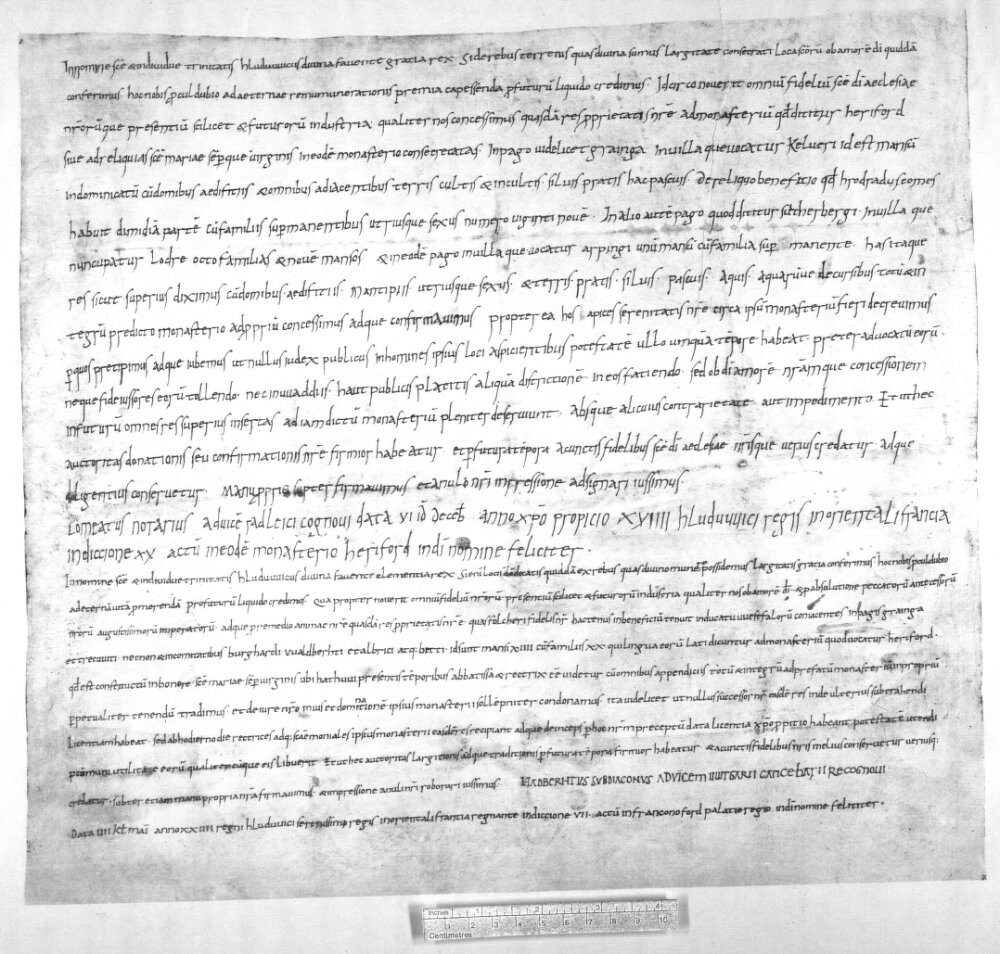 Innomine scē &individuę trinitatis hluduuuicus divina favente gratia rex Siderebusterrenis quas divina sumus largitate consecuti locis scōrū obamorē di quiddā
conferimus hocnobis proculdubio adaeternae remumunerationis premia capessenda profuturū liquido credimus. Idcirco noverit omniū fideliū scē di aeclesiae
nrōrūque presentiū scilicet &futurorū industria qualiter nosconcessimus quasdā res proprietatis nrē admonasteriū qd dicitur heriford
sive adreliquias scē mariae semperque virginis ineodē monasterio consecratas. Inpago videlicet grainga Invilla quevocatur Kelveri id est mansū
indominicatū cūdomibus aedificiis &omnibus adiacentibus terris cultis &incultis. silvis pratis hac pascuis. dereliquo beneficio qd hrodradus comes
habuit dimidiā partē cūfamiliis supmanentibus utriusque sexus numero viginti novē. Inalio autē pago quoddicitur scherbergi. Invilla que
nuncupatur Lodre octo familias &novē mansos &ineodē pago invilla que vocatur arpingi unū mansū cūfamilia sup manente has itaque
res sicut superius diximus cūdomibus. aedificiis. mancipiis utriusque sexus. &terris. pratis. silvis. pascuis. aquis. aquarūve decursibus totū &in
tegrū predicto monasterio adpropriū concessimus adque confirmavimus propter ea hos apices serenitatis nrē circa ipsū monasteriū fieri decrevimus
p quos precipimus adque iubemus ut nullus iudex publicus inhomines ipsius loci aspicientibus potestatē ullo umquā tēpore habeat. preter advocatū eorū.
neque fideiussores eorū tollendo. nec inwaddiis. haut publicis placitis aliquā districtionē ineos faciendo. sed ob di amorē nrāmque concessionem
infuturū omnes res superius insertas adiamdictū monasteriū pleniter deserviunt. absque alicuius contrarietate aut impedimento. Et ut hec
auctoritas donationis seu confirmationis nrē firmior habeatur et pfutura tēpora acunctis fidelibus scē di aeclesiae nrīsque verius credatur adque
diligentius conservetur. Manu propria subter firmavimus et anulo nrī impressione adsignari iussimus.
Comeatus notarius advicē radleici cognovi data VI id decēb anno xpō propicio XVIIII hluduuuici regis in orientali francia
indiccione XX actū ineodē monasterio heriford indi nomine feliciter.
Innomine scē &individuę trinitatis hluduuuicus divina favente clementia rex Sienū locis dō dicatis quiddā ex rebus quas divino munere possidemus largitatis gratia conferimus. hocnobis pculdubio
adeternā vitā pmerendā profuturū liquido credimus Quapropter noverit omniū fideliū nrōrū presentiū scilicet &futurorū industria qualiter nos obamorē di &pabsolutione peccatorū antecessorū
nrōrū augustissimorū imperatorū. adque premedio animae nrē quasdā res pprietatis nrē quas folcheri fidelis nr hactenus inbeneficiū tenuit inducatu westfalorū coniacentes inpagis grainga
et treciviti. necnon &incomitatibus burghardi. vualdberhti et albrici atq. betti. idsunt mansi XIIII cū familiis XXX qui lingua eorū lati dicuntur admonasteriū quod vocatur heriford.
qd est constructū inhonore scē mariae sep virginis ubi hathuui presentis tēporibus abbatissa &rectrix eē videtur cū omnibus appendiciis totū &integrū adprefatū monasteriū inpropriū
perpetualiter tenendū tradimus. et deiure nrō inius et dominationē ipsius monasterii sollēpniter condonamus. ita videlicet ut nullus successor nr easdē res inde ulterius subtrahendi
licentiam habeat. sed abhodierno die rectrices adq. scē moniales ipsius monasterii easdē res recipiant adque deinceps phoc nrm preceptū data licentia xpō ppitio habeant potestatē utendi
pcomuni utilitate eorū qualitercūque eis libuerit Et ut hec auctoritas largitionis adque traditionis pfutura tēpora firmior habeatur &acunctis fidelibus nris melius conservetur veriusq.
credatur. subter etiam manu propria nrā firmavimus. &impressione anuli nri roborari iussimus. HADBERHTUS SUBDIACONUS ADVICEM WITGARII CANCELLARII RECOGNOVI
Data IIII kl maii anno XXVIII regni hluduuuici serenissimo regis in orientali francia regnante indiccione VII. actū infranconoford palatio regio indī nomine feliciter.
Inches 1 2 3 4
1 2 3 4 5 6 7 8 9 10
Centimetres